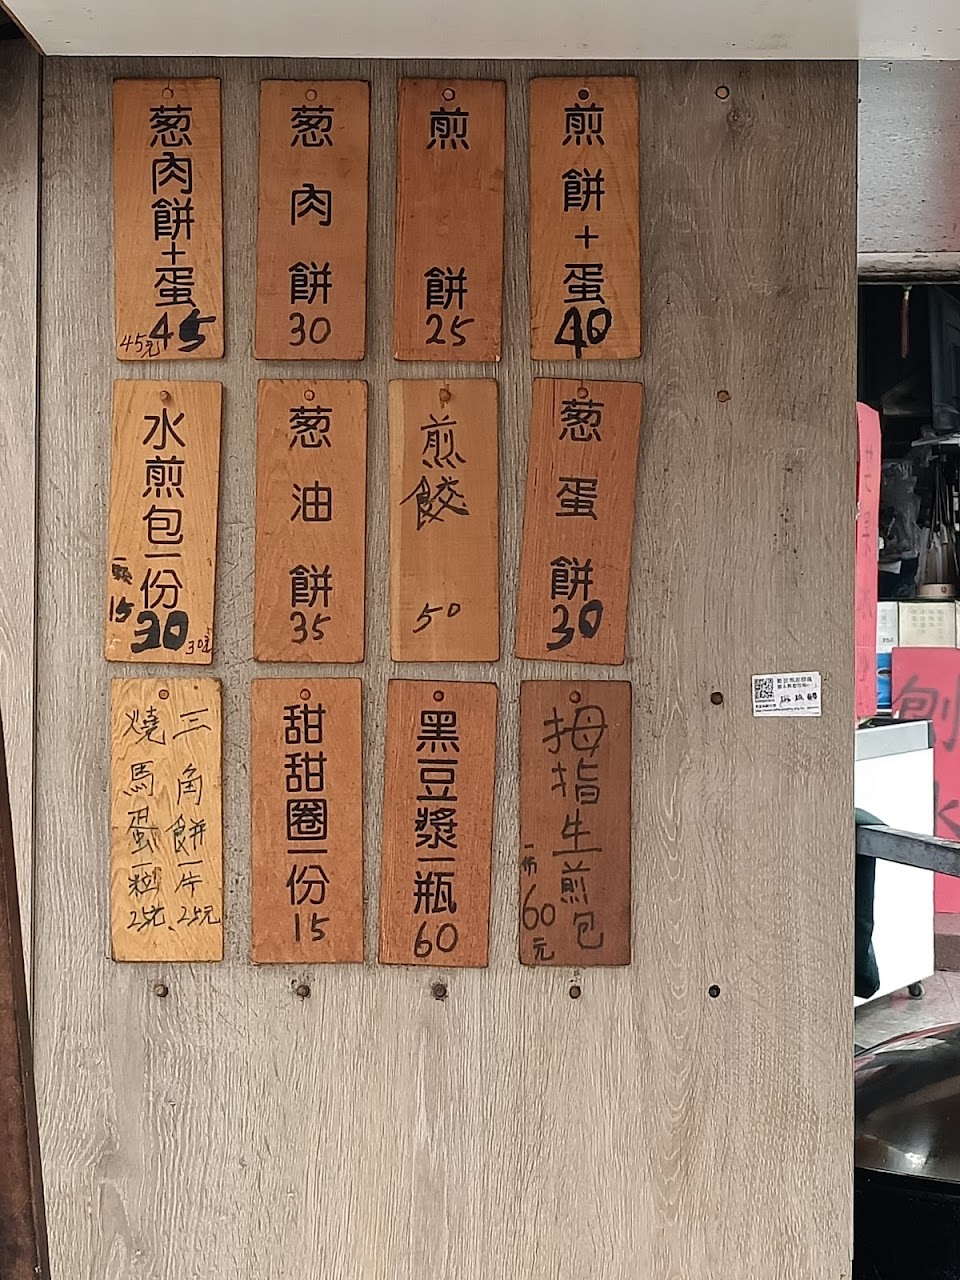 葱肉餅+蛋
45
45元
葱肉餅
30
煎餅
25
煎餅+蛋
40
水煎包一份
30
30元
一顆
15
葱油餅
35
煎餃
50
葱蛋餅
30
三角餅一件25元
燒馬蛋一粒25元
甜甜圈一份
15
黑豆漿一瓶
60
拇指生煎包
一份60元
刨